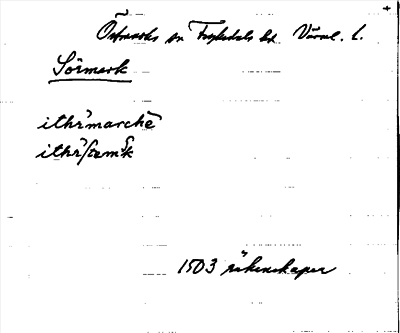 Östmarks sn Fryksdals hd Värml. l.
Sörmark
ithr'marchē
1503 räkenskaper